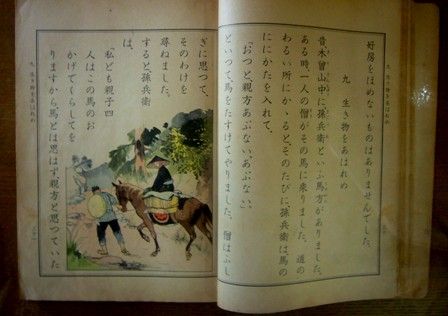 好房をほめないものはありませんでした。
九 生き物をあはれめ
昔木曾山中に孫兵衞といふ馬方がありました。
ある時一人の僧がその馬に乘りました。道の
わるい所にかゝると、そのたびに、孫兵衞は馬の
にゝかたを入れて、
「おつと、親方あぶない、あぶない。」
といつて馬をたすけてやりました。僧はふし
ぎに思つて、
そのわけを
尋ねました。
すると孫兵衞
は、
私ども親子四
人はこの馬のお
かげでくらしてを
りますから、馬とは思はず、親方と思つていた
九 生き物をあはれめ